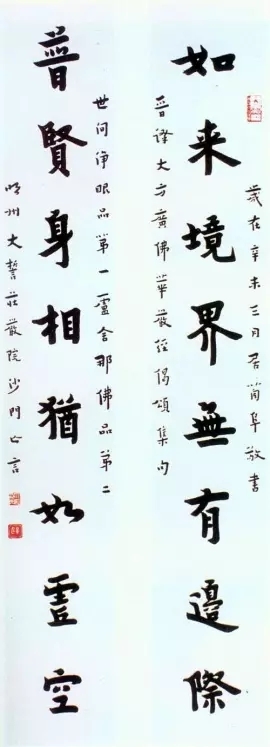 歲在辛未三月居蘭阜敬書
如来境界無有邊際
晉譯大方廣佛華嚴經偈頌集句
世間淨眼品第一盧舍那佛品第二
普賢身相猶如虛空
明州大誓莊嚴院沙門亡言